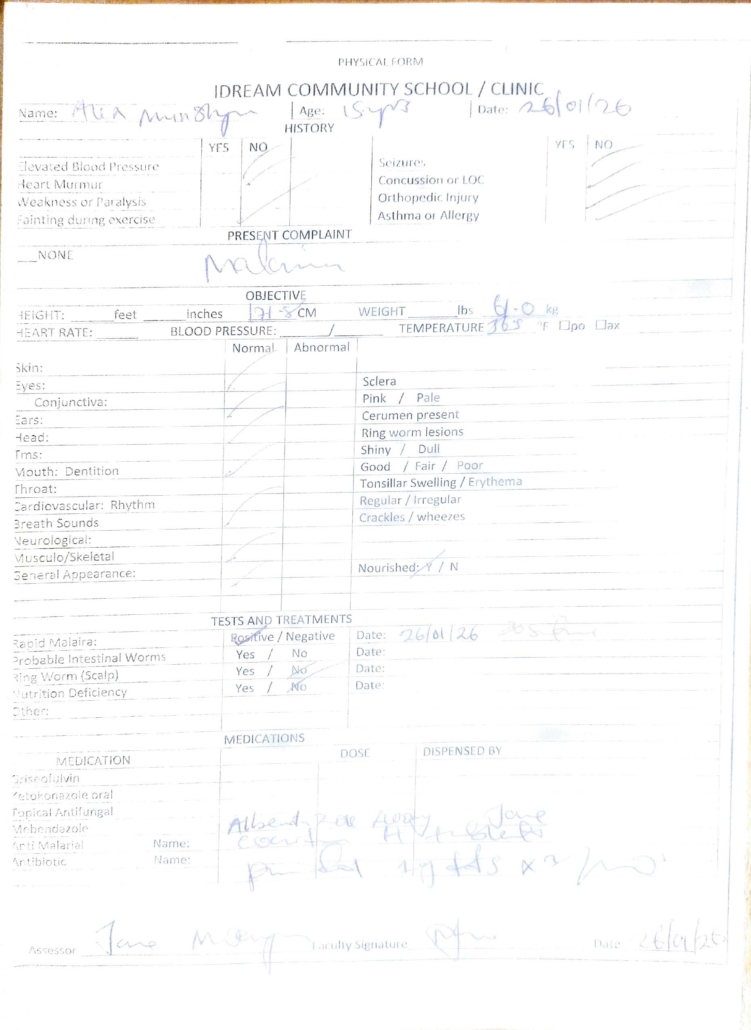 PHYSICAL FORM
IDREAM COMMUNITY SCHOOL / CLINIC
Name: Age: 15yrs Date: 26/01/26
HISTORY
YES NO YES NO
Elevated Blood Pressure Seizures
Heart Murmur Concussion or LOC
Weakness or Paralysis Orthopedic Injury
Fainting during exercise Asthma or Allergy
PRESENT COMPLAINT
__NONE
Malaria
OBJECTIVE
HEIGHT: ______ feet ______ inches 171.8 CM WEIGHT ______ lbs kg
HEART RATE: ______ BLOOD PRESSURE: ______/______ TEMPERATURE 36.5 °F □po □ax
Normal Abnormal
Skin:
Eyes: Sclera
Conjunctiva: Pink / Pale
Ears: Cerumen present
Head: Ring worm lesions
Tms: Shiny / Dull
Mouth: Dentition Good / Fair / Poor
Throat: Tonsillar Swelling / Erythema
Cardiovascular: Rhythm Regular / Irregular
Breath Sounds Crackles / wheezes
Neurological:
Musculo/Skeletal
General Appearance: Nourished: Y / N
TESTS AND TREATMENTS
Rapid Malaira: Positive / Negative Date: 26/01/26
Probable Intestinal Worms Yes / No Date:
Ring Worm (Scalp) Yes / No Date:
Nutrition Deficiency Yes / No Date:
Other:
MEDICATIONS
MEDICATION DOSE DISPENSED BY
Griseofulvin
Ketokonazole oral
Topical Antifungal
Mebendazole Jane
Anti Malarial Name:
Antibiotic Name: 1g tds x 3
Assessor Jane Faculty Signature Date 26/01/26